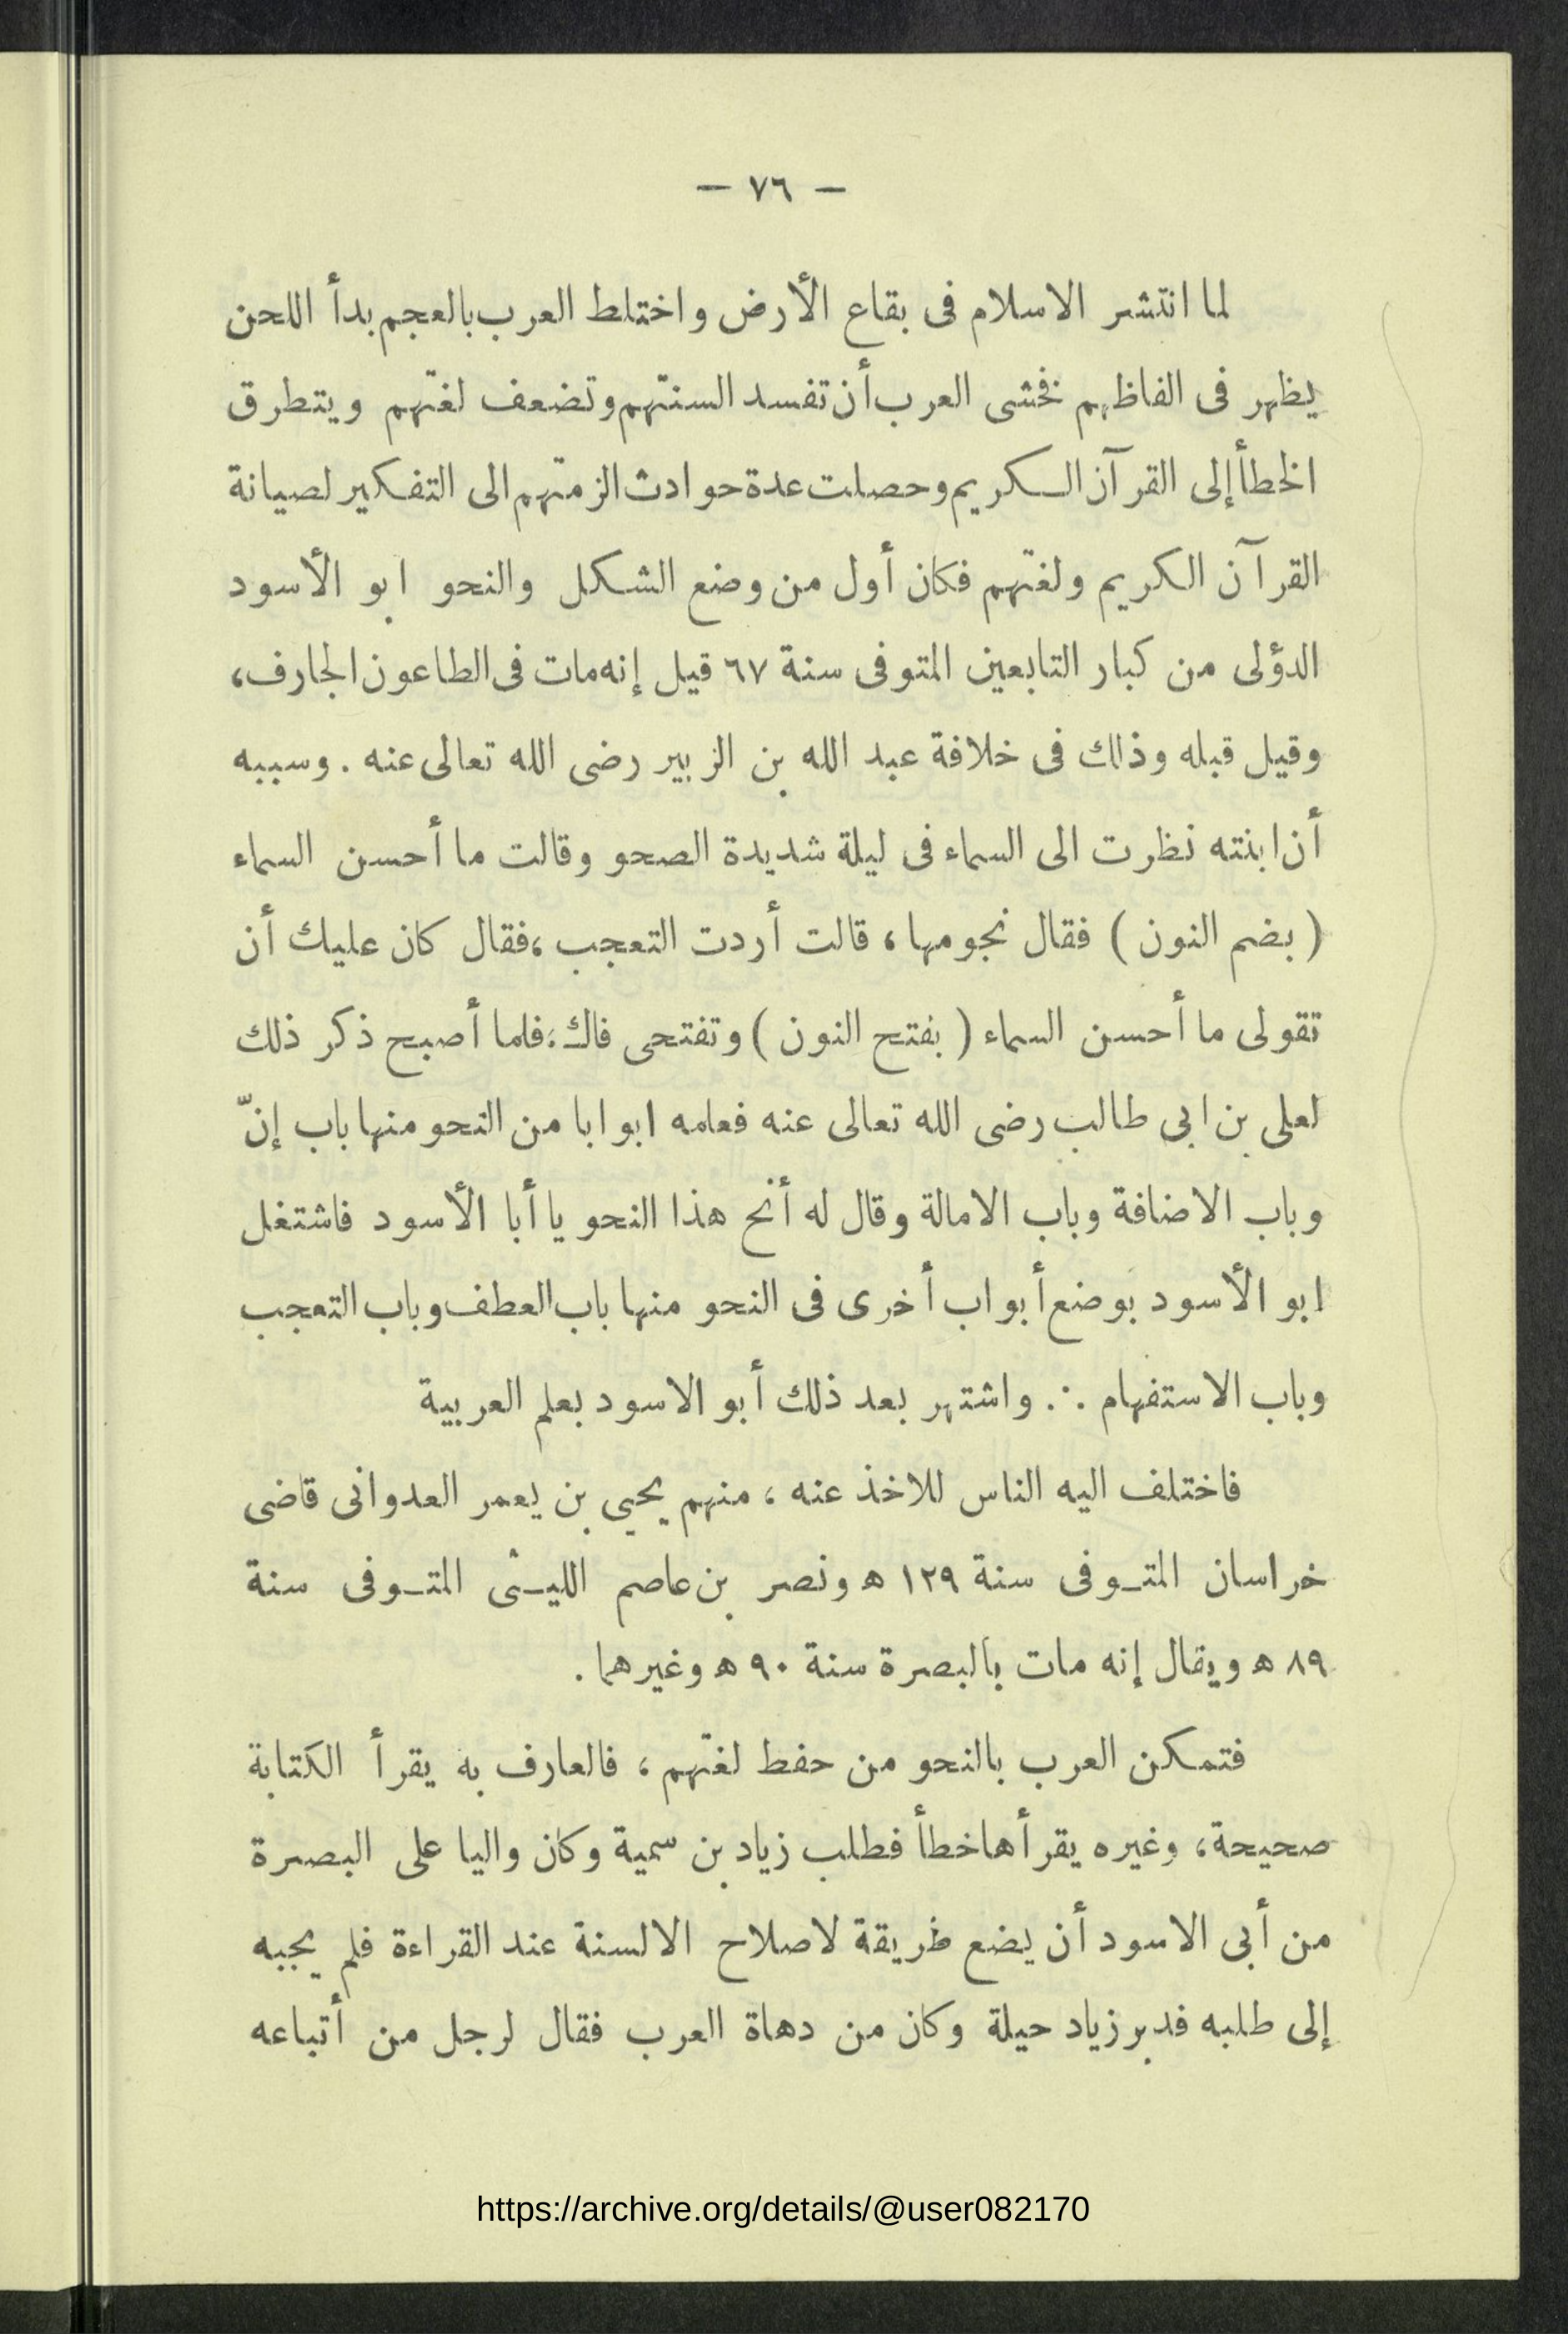 — ٧٦ —
لما انتشر الاسلام فى بقاع الأرض واختلط العرب بالعجم بدأ اللحن
يظهر فى الفاظهم فخشى العرب أن تفسد السنتهم وتضعف لغتهم ويتطرق
الخطأ إلى القرآن الكريم وحصلت عدة حوادث الزمتهم الى التفكير لصيانة
القرآن الكريم ولغتهم فكان أول من وضع الشكل والنحو ابو الأسود
الدؤلى من كبار التابعين المتوفى سنة ٦٧ قيل إنه مات فى الطاعون الجارف،
وقيل قبله وذلك فى خلافة عبد الله بن الزبير رضى الله تعالى عنه . وسببه
أن ابنته نظرت الى السماء فى ليلة شديدة الصحو وقالت ما أحسن السماء
( بضم النون ) فقال نجومها ، قالت أردت التعجب ، فقال كان عليك أن
تقولى ما أحسن السماء ( بفتح النون ) وتفتحى فاك ، فلما أصبح ذكر ذلك
لعلى بن ابى طالب رضى الله تعالى عنه فعلمه ابوابا من النحو منها باب إنّ
وباب الاضافة وباب الامالة وقال له أنح هذا النحو يا أبا الأسود فاشتغل
ابو الأسود بوضع أبواب أخرى فى النحو منها باب العطف وباب التعجب
وباب الاستفهام .·. واشتهر بعد ذلك أبو الاسود بعلم العربية
فاختلف اليه الناس للاخذ عنه ، منهم يحيى بن يعمر العدوانى قاضى
خراسان المتـوفى سنة ١٢٩ ه ونصر بن عاصم الليـثى المتـوفى سنة
٨٩ ه ويقال إنه مات بالبصرة سنة ٩٠ ه وغيرهما .
فتمكن العرب بالنحو من حفظ لغتهم ، فالعارف به يقرأ الكتابة
صحيحة ، وغيره يقرأها خطأ فطلب زياد بن سمية وكان واليا على البصرة
من أبى الاسود أن يضع طريقة لاصلاح الالسنة عند القراءة فلم يجبه
إلى طلبه فدبر زياد حيلة وكان من دهاة العرب فقال لرجل من أتباعه
https://archive.org/details/@user082170